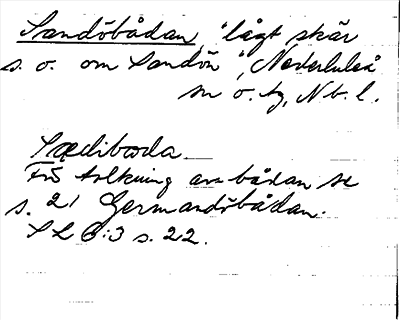 Sandöbådan, "lågt skär
s. o. om Sandön", Nederluleå
sn o. tg, Nb. l.
Sædiboda
För tolkning av bådan se
s. 21 Germandöbådan.
SL 6:3 s. 22.